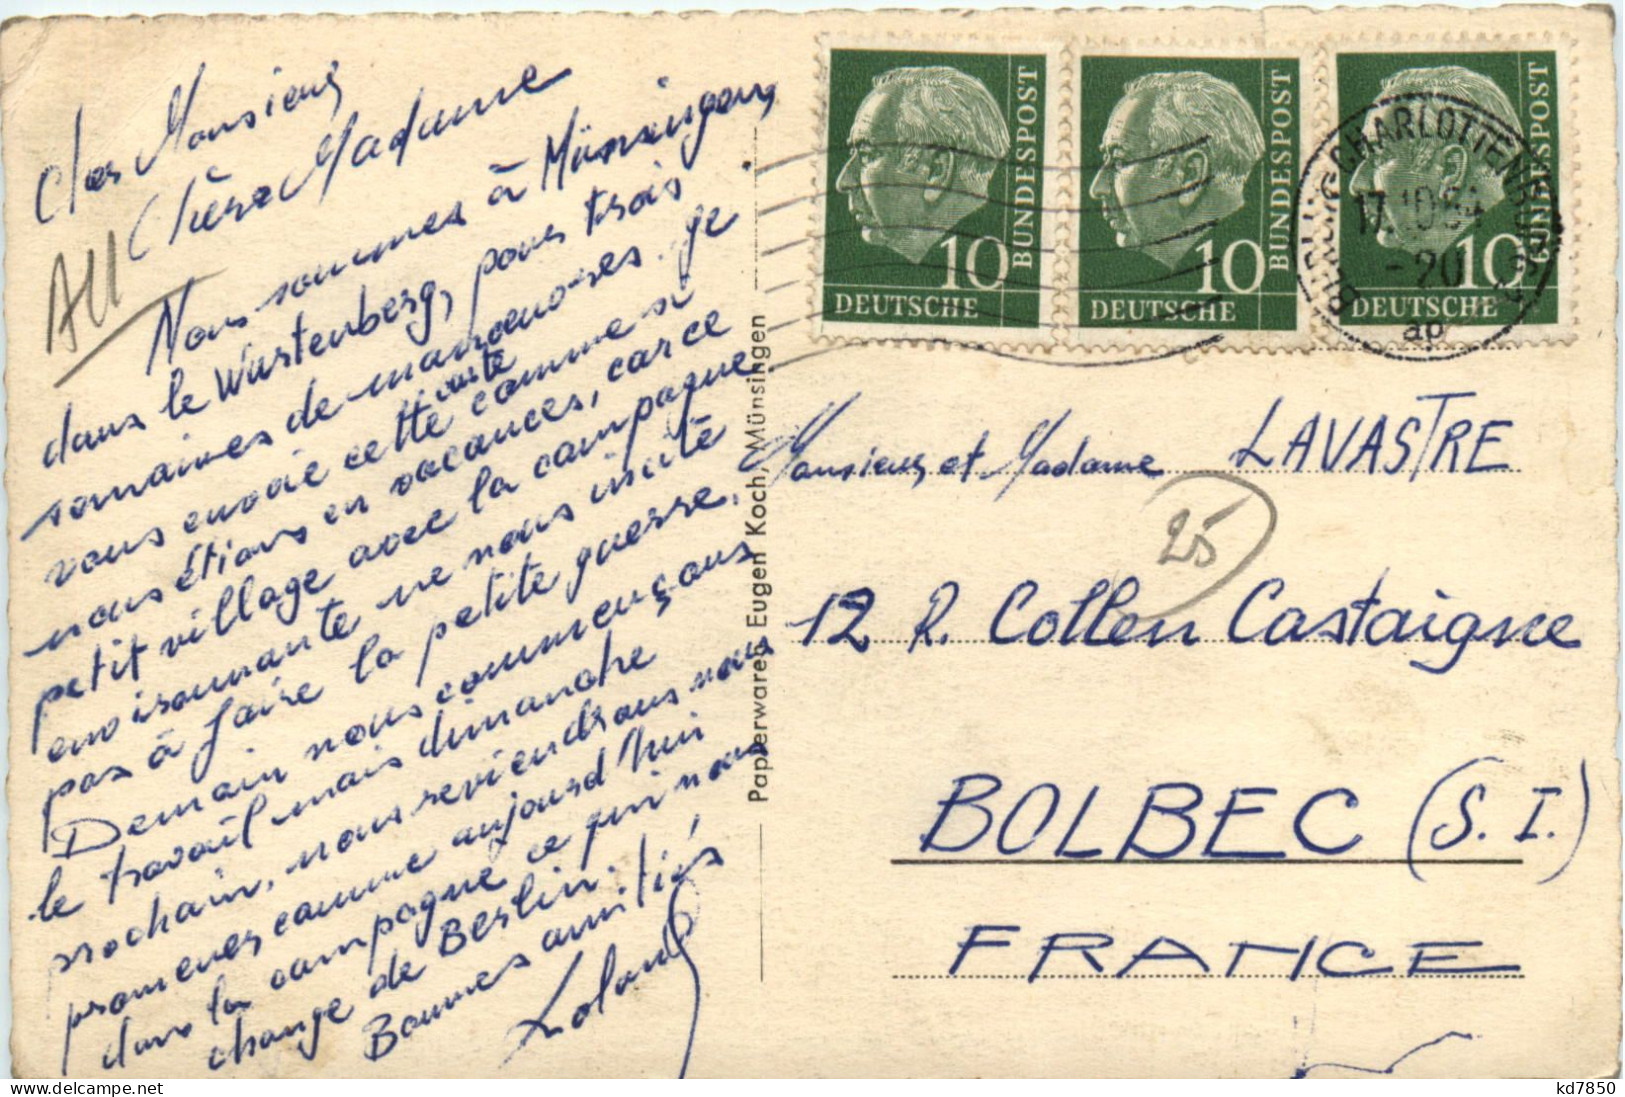 Cher Monsieur,
Chère Madame
Nous sommes à Münsingen,
dans le Wurtenberg, pour trois
semaines de manoeuvres. Je
vous envoie cette carte comme si
nous étions en vacances, car ce
petit village avec la campagne
environnante ne nous incite
pas à faire la petite guerre.
Demain nous commençons
le travail mais dimanche
prochain, nous reviendrons nous
promener comme aujourd'hui
dans la campagne ce qui nous
change de Berlin.
Bonnes amitiés
Roland
All
Papierwaren Eugen Koch, Münsingen
10
DEUTSCHE
BUNDESPOST
10
DEUTSCHE
BUNDESPOST
10
DEUTSCHE
BUNDESPOST
BERLIN-CHARLOTTENBURG
-20
ap
Monsieur et Madame LAVASTRE
25
12 R. Collen Castaigne
BOLBEC (S. I.)
FRANCE
kd7850